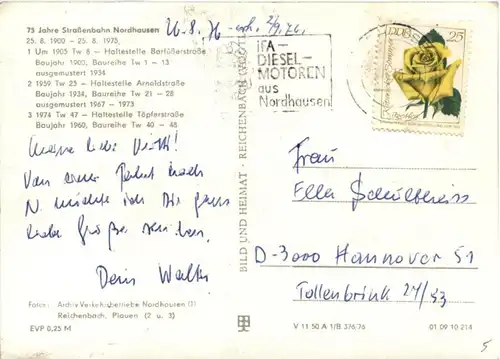 75 Jahre Straßenbahn Nordhausen
25. 8. 1900 – 25. 8. 1975
1 Um 1905 Tw 8 – Haltestelle Barfüßerstraße
Baujahr 1900, Baureihe Tw 1 – 13
ausgemustert 1934
2 1959 Tw 23 – Haltestelle Arnoldstraße
Baujahr 1934, Baureihe Tw 21 – 28
ausgemustert 1967 – 1973
3 1974 Tw 47 – Haltestelle Töpferstraße
Baujahr 1960, Baureihe Tw 40 – 48
26.8.76 2/9.76
Meine liebe
Von einer Fahrt nach
N. möchte ich Dir ganz
liebe Grüße senden.
Dein
Fotos: Archiv Verkehrsbetriebe Nordhausen (1)
Reichenbach, Plauen (2 u. 3)
EVP 0,25 M
BILD UND HEIMAT · REICHENBACH (VOGTL)
IFA–
DIESEL–
MOTOREN
aus
Nordhausen
DDR 25
Frau
Ella Schultheiss
D-3000 Hannover 51
Tollenbrink
V 11 50 A 1/B 376/76 01 09 10 214
5